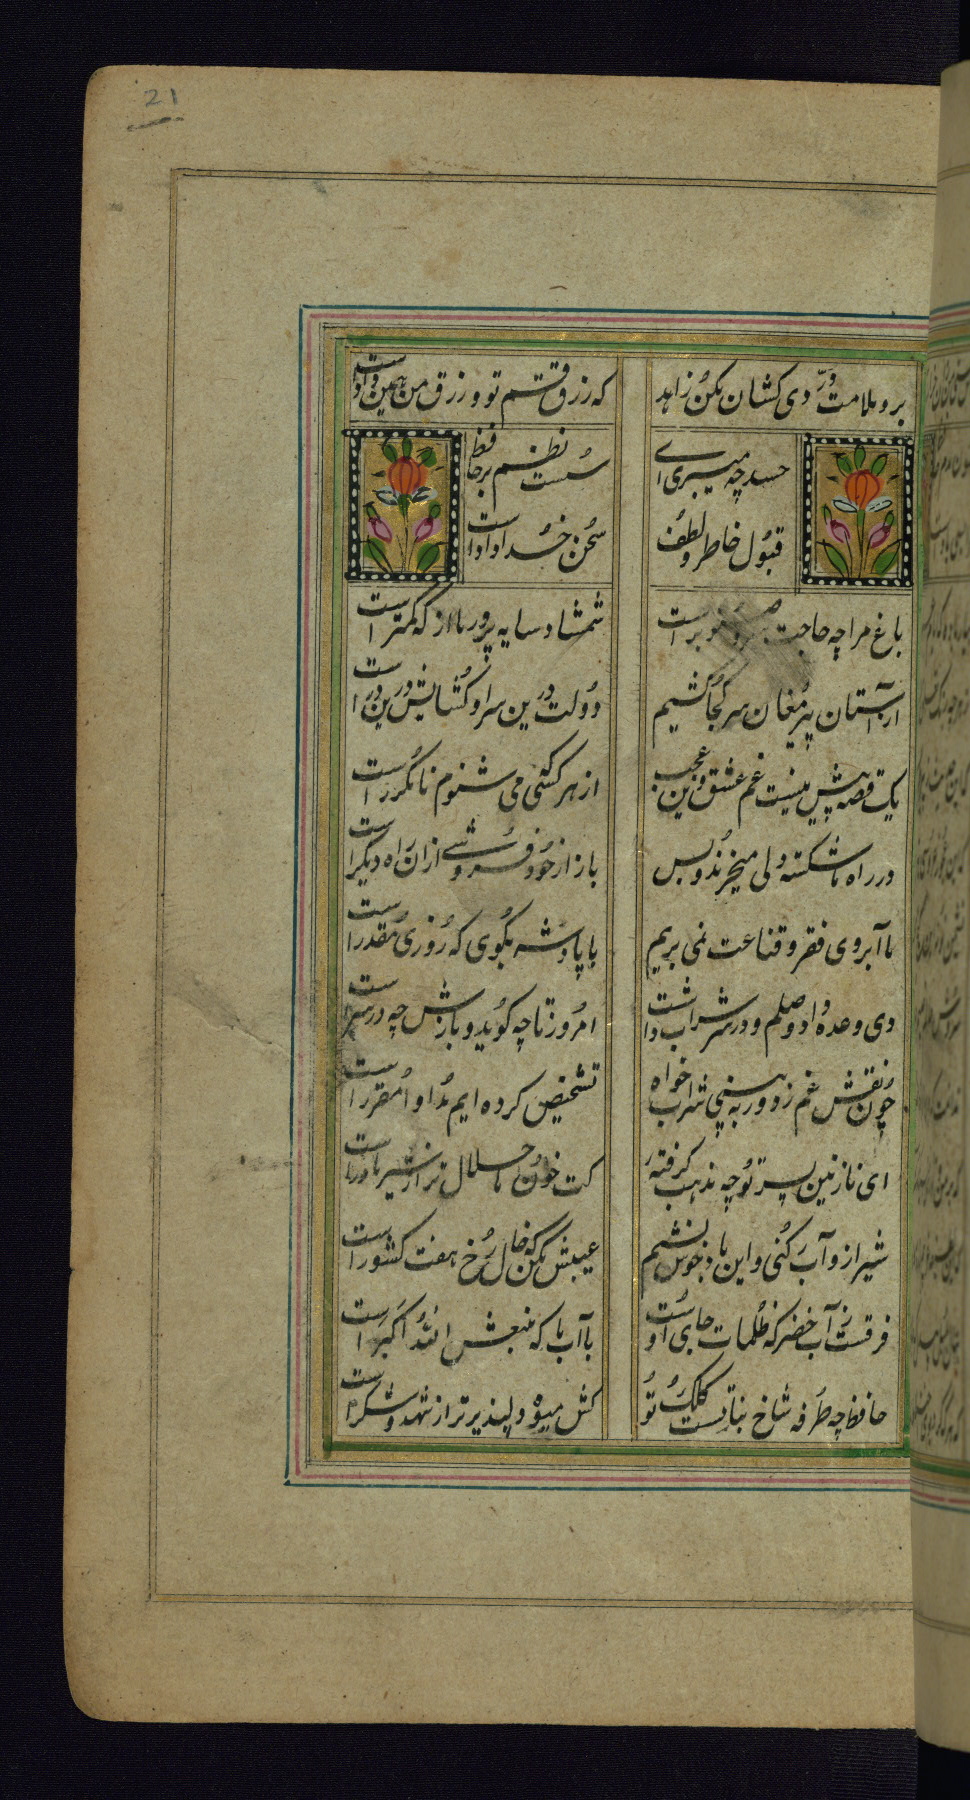 21
برو ملامت دردی کشان مکن زاهد
که رزق قسم تو و رزق من همین داد است
حسد چه میبری ای سست نظم بر حافظ
قبول خاطر و لطف سخن خداداد است
باغ مرا چه حاجت صنوبر است
شمشاد سایه پرور ما از که کمتر است
از آستان پیر مغان سر کجا کشیم
دولت درین سرا و کشایش درین در است
یک قصه پیش نیست غم عشق و این عجب
از هر کسی می شنوم نامکرر است
در راه ما شکسته دلی میخرند و بس
بازار خود فروشی از ان راه دیگر است
ما آبروی فقر و قناعت نمی بریم
با پادشه بگوی که روزی مقدر است
دی وعده داد وصلم و در سر شراب داشت
امروز تا چه گوید و بازش چه در سر
چون نقش غم ز دور به بینی شراب خواه
تشخیص کرده ایم مداوا مقرر است
ای نازنین پسر تو چه مذهب گرفته
کت خون ما حلال تر از شیر مادر است
شیراز و آب رکنی و این باد خوش نسیم
عیبش مکن که خال رخ هفت کشور است
فرقست ز آب خضر که ظلمات جای اوست
تا آب ما که منبعش الله اکبر است
حافظ چه طرفه شاخ نباتیست کلک تو
کش میوه دلپذیرتر از شهد و شکر است